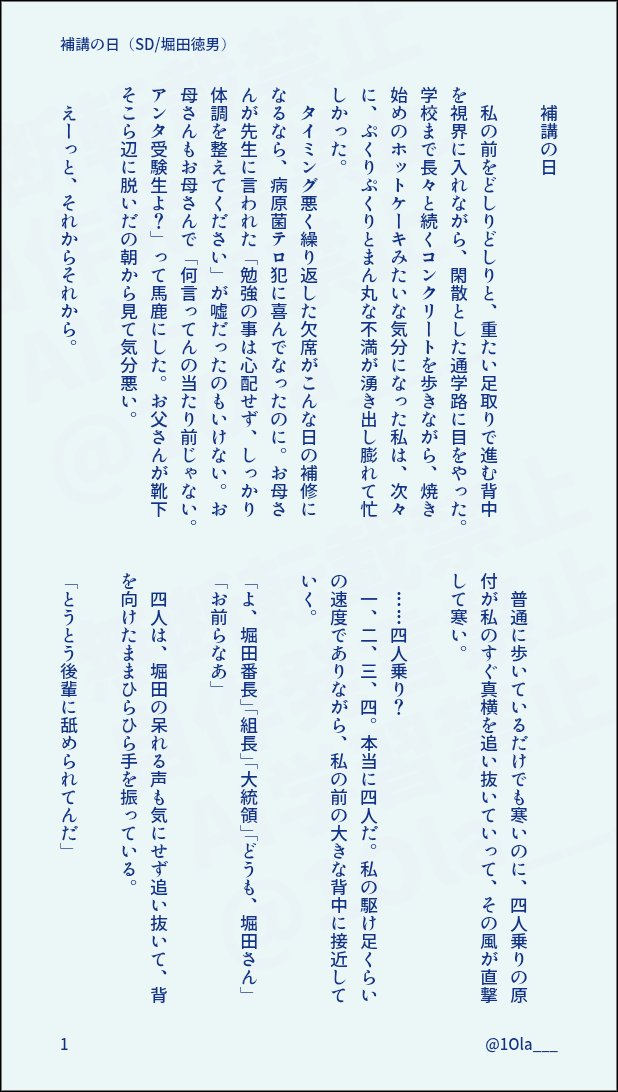 補講の日（SD/堀田徳男）
補講の日
私の前をどしりどしりと、重たい足取りで進む背中
を視界に入れながら、閑散とした通学路に目をやった。
学校まで長々と続くコンクリートを歩きながら、焼き
始めのホットケーキみたいな気分になった私は、次々
に、ぷくりぷくりとまん丸な不満が湧き出し膨れて忙
しかった。
タイミング悪く繰り返した欠席がこんな日の補修に
なるなら、病原菌テロ犯に喜んでなったのに。お母さ
んが先生に言われた「勉強の事は心配せず、しっかり
体調を整えてください」が嘘だったのもいけない。お
母さんもお母さんで「何言ってんの当たり前じゃない。
アンタ受験生よ？」って馬鹿にした。お父さんが靴下
そこら辺に脱いだの朝から見て気分悪い。
えーっと、それからそれから。
普通に歩いているだけでも寒いのに、四人乗りの原
付が私のすぐ真横を追い抜いていって、その風が直撃
して寒い。
……四人乗り？
一、二、三、四。本当に四人だ。私の駆け足くらい
の速度でありながら、私の前の大きな背中に接近して
いく。
「よ、堀田番長」「組長」「大統領」「どうも、堀田さん」
「お前らなあ」
四人は、堀田の呆れる声も気にせず追い抜いて、背
を向けたままひらひら手を振っている。
「とうとう後輩に舐められてんだ」
1
@1Ola___